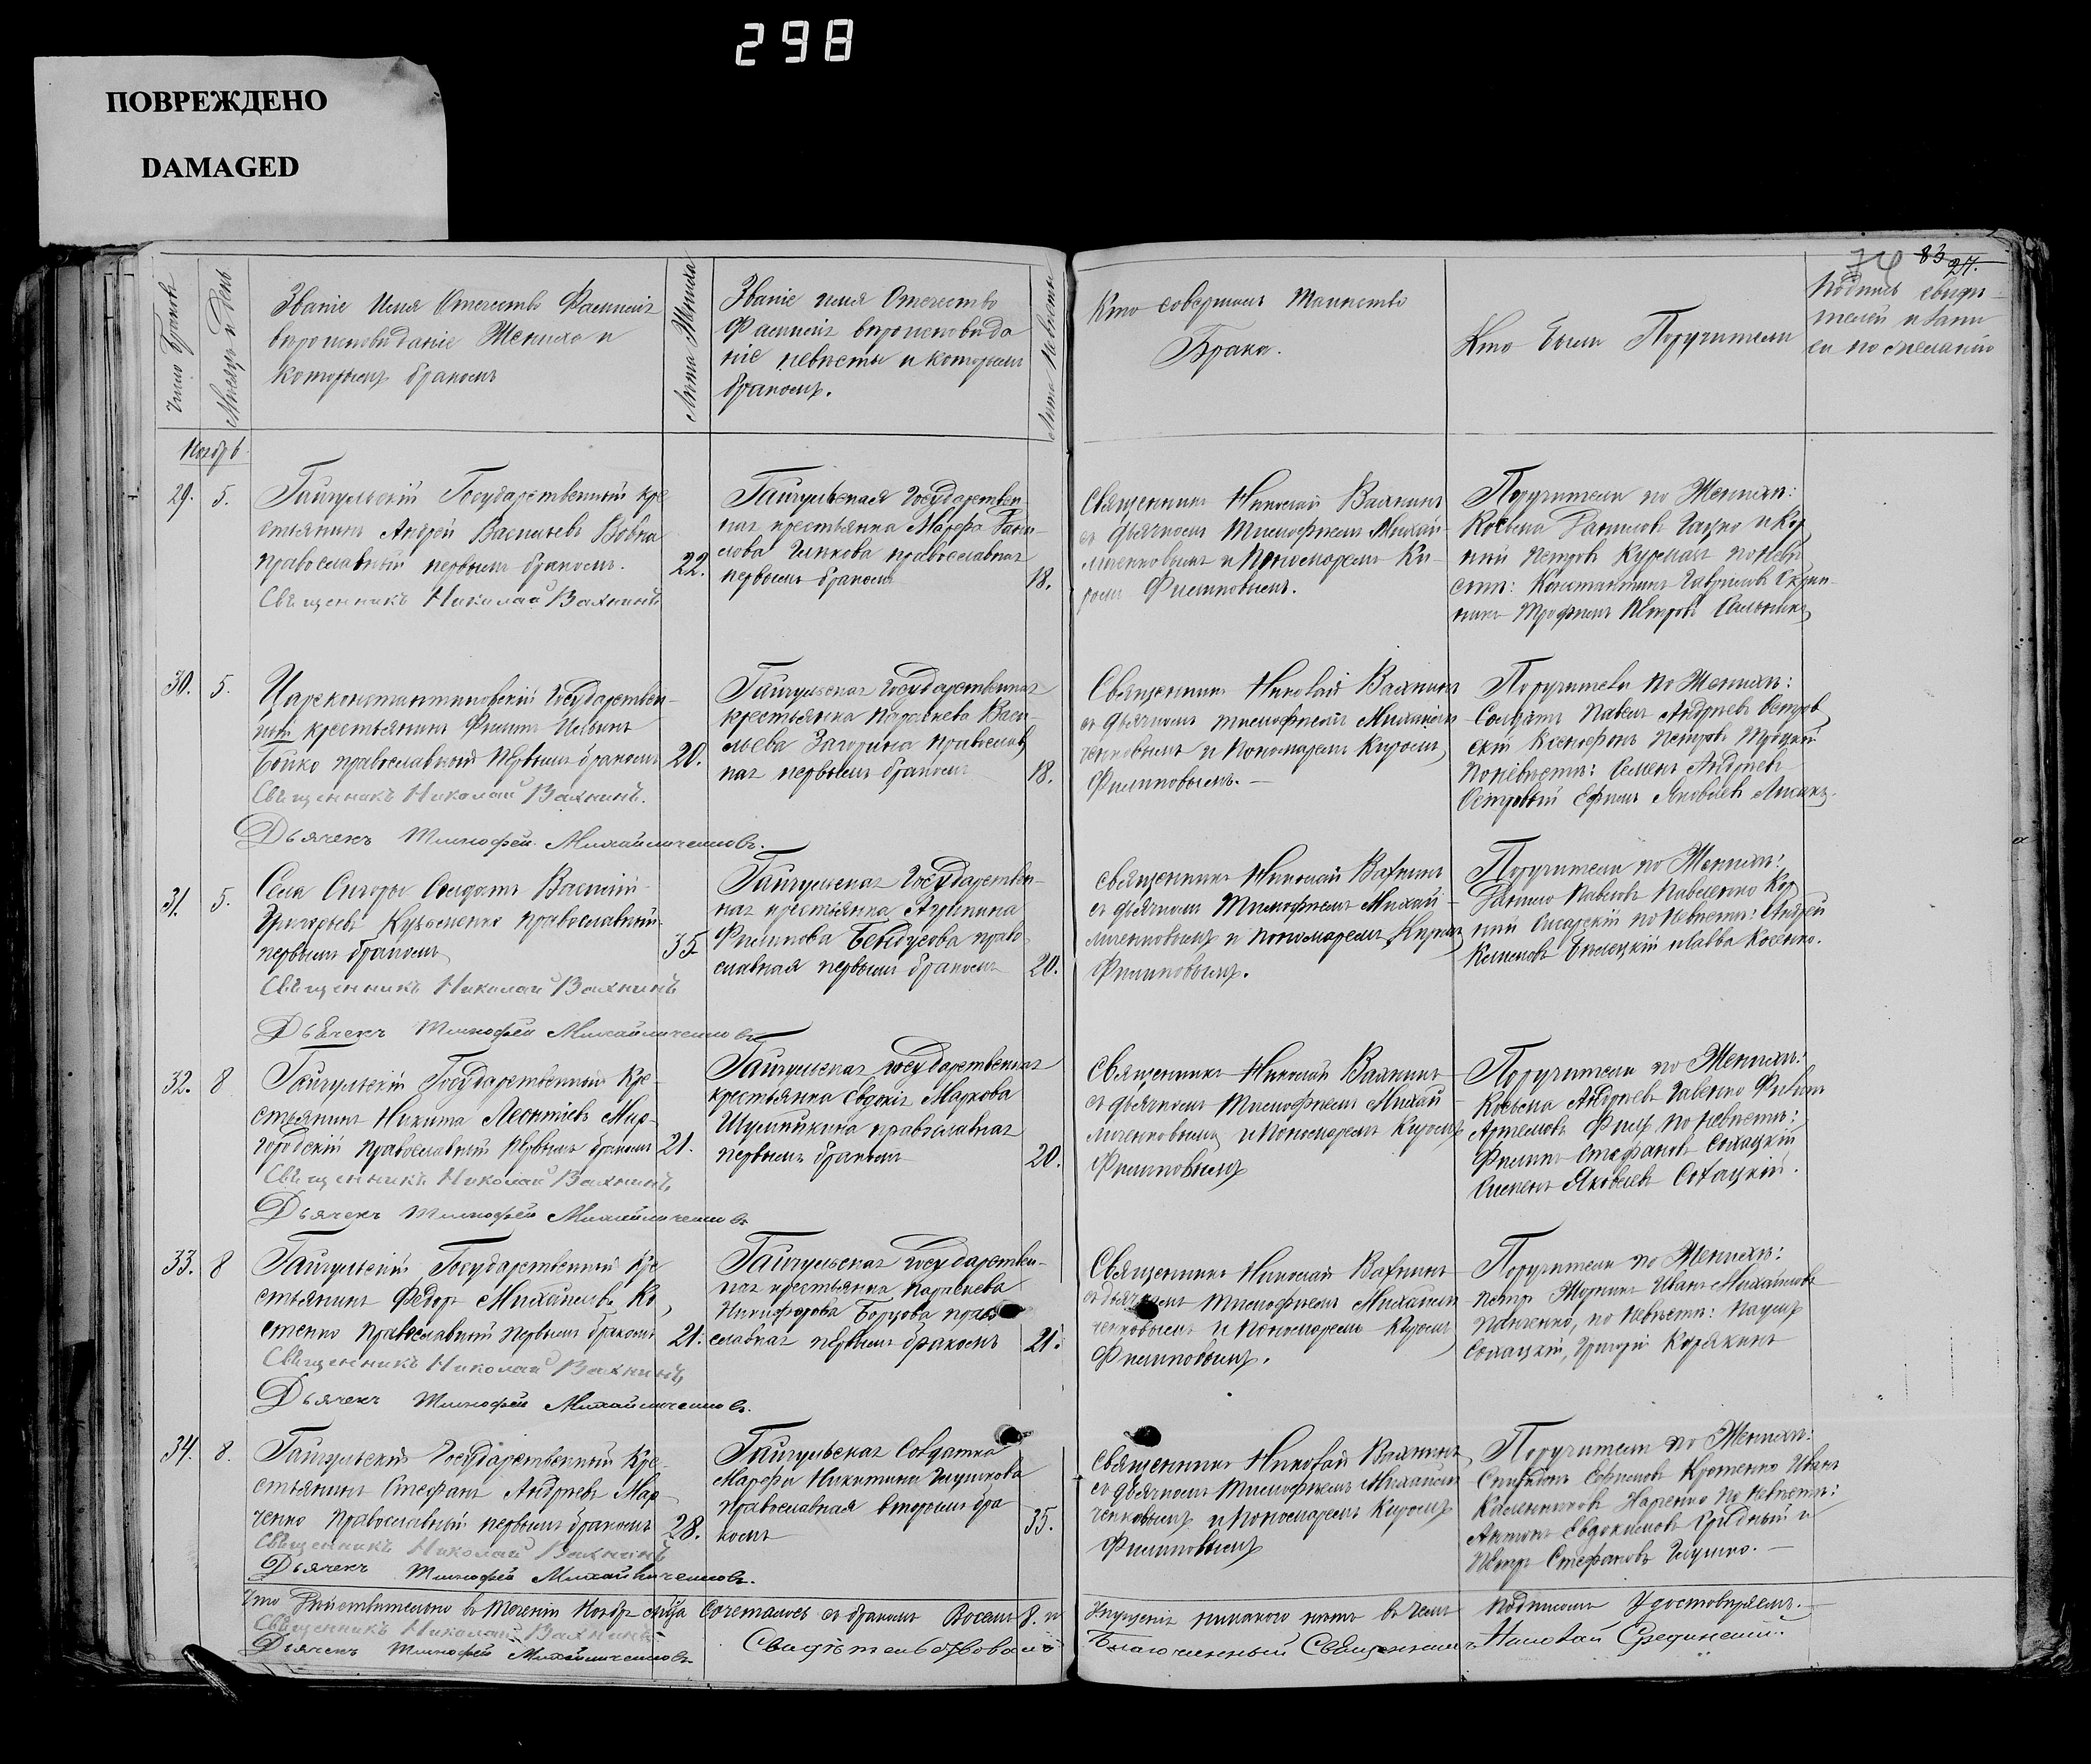 298
ПОВРЕЖДЕНО
DAMAGED
74 83 27.
Число Браковъ
Месяцъ и День
Званіе Имя Отечество Фамилія
вероисповеданіе Жениха и
которымъ бракомъ
Лета Жениха
Званіе имя Отечество
Фамилія вероисповеда
ніе невесты и которымъ
бракомъ.
Лета Невесты
Кто совершалъ Таинство
Брака.
Кто были Поручители
Подпись свиде
телей и записи
по желанію
Ноябрь
29. 5.
Гайчульскій Государственный кре
стьянинъ Андрей Васильевъ Вовна
православный первымъ бракомъ.
22.
Священникъ Николай Вахнинъ
Гайчульская Государствен
ная крестьянка Марфа
православная
первымъ бракомъ
18.
Священникъ Николай Вахнинъ
съ дьячкомъ Тимофеемъ Михай
личенковымъ и Пономаремъ Ки
ромъ Филиповымъ.
Поручители по Женихе:
Косьма Даниловъ и Кор
ній Петровъ по неве
сте: Константинъ Гавриловъ
Трофимъ Петровъ
30. 5.
Цареконстантиновскій Государствен
ный крестьянинъ Филипъ
Бойко православный первымъ бракомъ
20.
Священникъ Николай Вахнинъ.
Дьячекъ Тимофей Михайличенковъ.
Гайчульская Государственная
крестьянка Параскева Васи
льева Загорина православ
ная первымъ бракомъ
18.
Священникъ Николай Вахнинъ
съ дьячкомъ Тимофеемъ Михайли
ченковымъ и Пономаремъ Киромъ
Филиповымъ.
Поручители по Женихе:
Солдатъ Павелъ Андреевъ Остров
скій Ксенофонъ Петровъ Троцкій
По невесте: Семенъ Андреевъ
Островый Ефимъ Яковлевъ
31. 5.
Села Солдатъ Василій
Григорьевъ Кузьменко православный
первымъ бракомъ
35
Священникъ Николай Вахнинъ
Дьячекъ Тимофей Михайличенковъ
Гайчульская Государствен
ная крестьянка Агрипина
Филипова право
славная первымъ бракомъ
20.
Священникъ Николай Вахнинъ
съ дьячкомъ Тимофеемъ Михай
личенковымъ и пономаремъ Киромъ
Филиповымъ.
Поручители по Женихе:
Данило Павловъ Павленко Кор
ній по невесте: Андрей
Климовъ Билецкій и Савва Косенко.
32. 8
Гайчульскій Государственный Кре
стьянинъ Никита Леонтіевъ Мир
городскій православный первымъ бракомъ
21.
Священникъ Николай Вахнинъ
Дьячекъ Тимофей Михайличенковъ
Гайчульская Государственная
крестьянка Евдокія Маркова
Шулейкина православная
первымъ бракомъ
20.
Священникъ Николай Вахнинъ
съ дьячкомъ Тимофеемъ Михай
личенковымъ и Пономаремъ Киромъ
Филиповымъ
Поручители по Женихе:
Косьма Андреевъ
Артемовъ по невесте:
Филипъ Стефановъ Сохацкій
Симеонъ Яковлевъ Сохацкій.
33. 8
Гайчульскій Государственный Кре
стьянинъ Федоръ Михайловъ Ко
стенко православный первымъ бракомъ
21.
Священникъ Николай Вахнинъ
Дьячекъ Тимофей Михайличенковъ.
Гайчульская Государствен
ная крестьянка Параскева
Никифорова Борцова право
славная первымъ бракомъ
21.
Священникъ Николай Вахнинъ
съ дьячкомъ Тимофеемъ Михайли
ченковымъ и Пономаремъ Киромъ
Филиповымъ.
Поручители по Женихе:
Петръ Иванъ Михайловъ
Панченко, по невесте:
Сохацкій, Григорій Корякинъ
34. 8.
Гайчульскій Государственный Кре
стьянинъ Стефанъ Андреевъ Мар
ченко Православный первымъ бракомъ
28.
Священникъ Николай Вахнинъ
Дьячекъ Тимофей Михайличенковъ.
Гайчульская Солдатка
Марфа Никитина Глушкова
православная вторымъ бра
комъ
35.
Священникъ Николай Вахнинъ
съ дьячкомъ Тимофеемъ Михайли
ченковымъ и Пономаремъ Киромъ
Филиповымъ
Поручители по Женихе:
Спиридонъ Ефимовъ Кротенко Иванъ
по невесте:
Антонъ Евдокимовъ и
Петръ Стефановъ Глушко.
Что Действительно въ Теченіи Ноября месяца Сочеталось съ бракомъ Восемь 8. и
никакого нетъ въ чемъ подписомъ Удостоверяемъ.
Священникъ Николай Вахнинъ
Дьячекъ Тимофей Михайличенковъ
Свидетельствовалъ
Благочинный Священникъ Николай